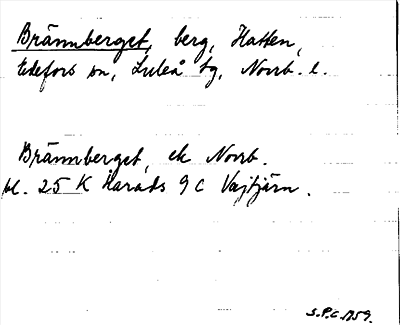 Brännberget, berg, Hatten,
Edefors sn, Luleå tg, Norrb. l.
Brännberget, ek Norrb.
bl. 25 K Harads 9 c Vajtjärn.
S.P.C. 1759.